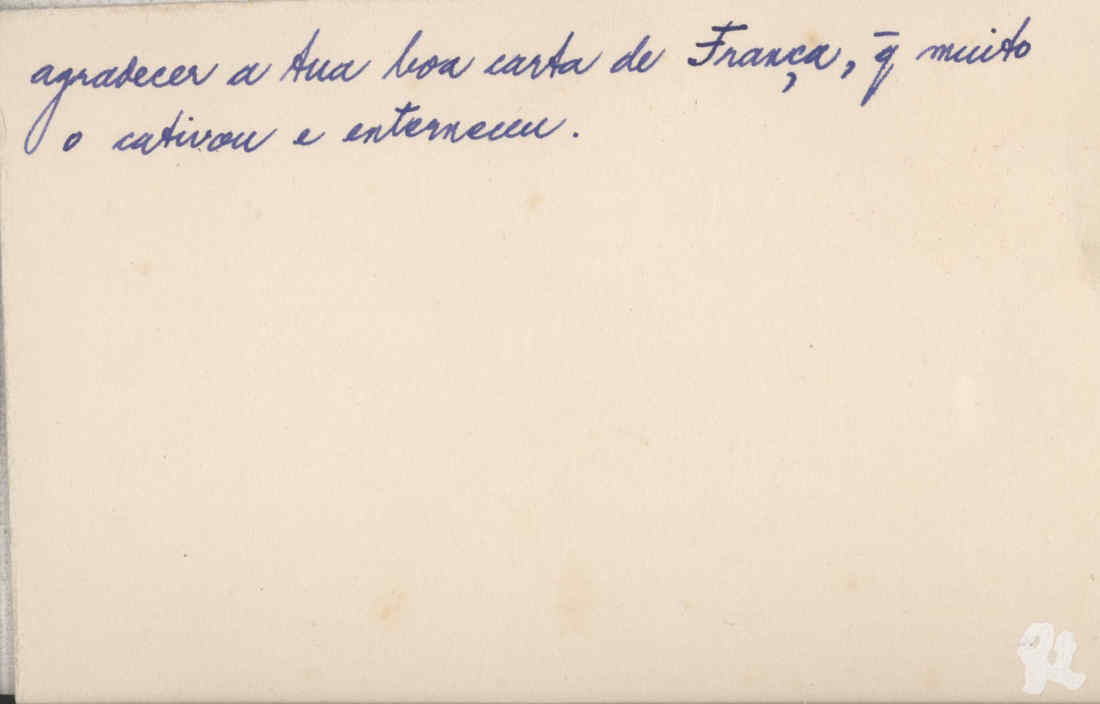 agradecer a tua boa carta de França, q̄ muito
o cativou e enterneceu.